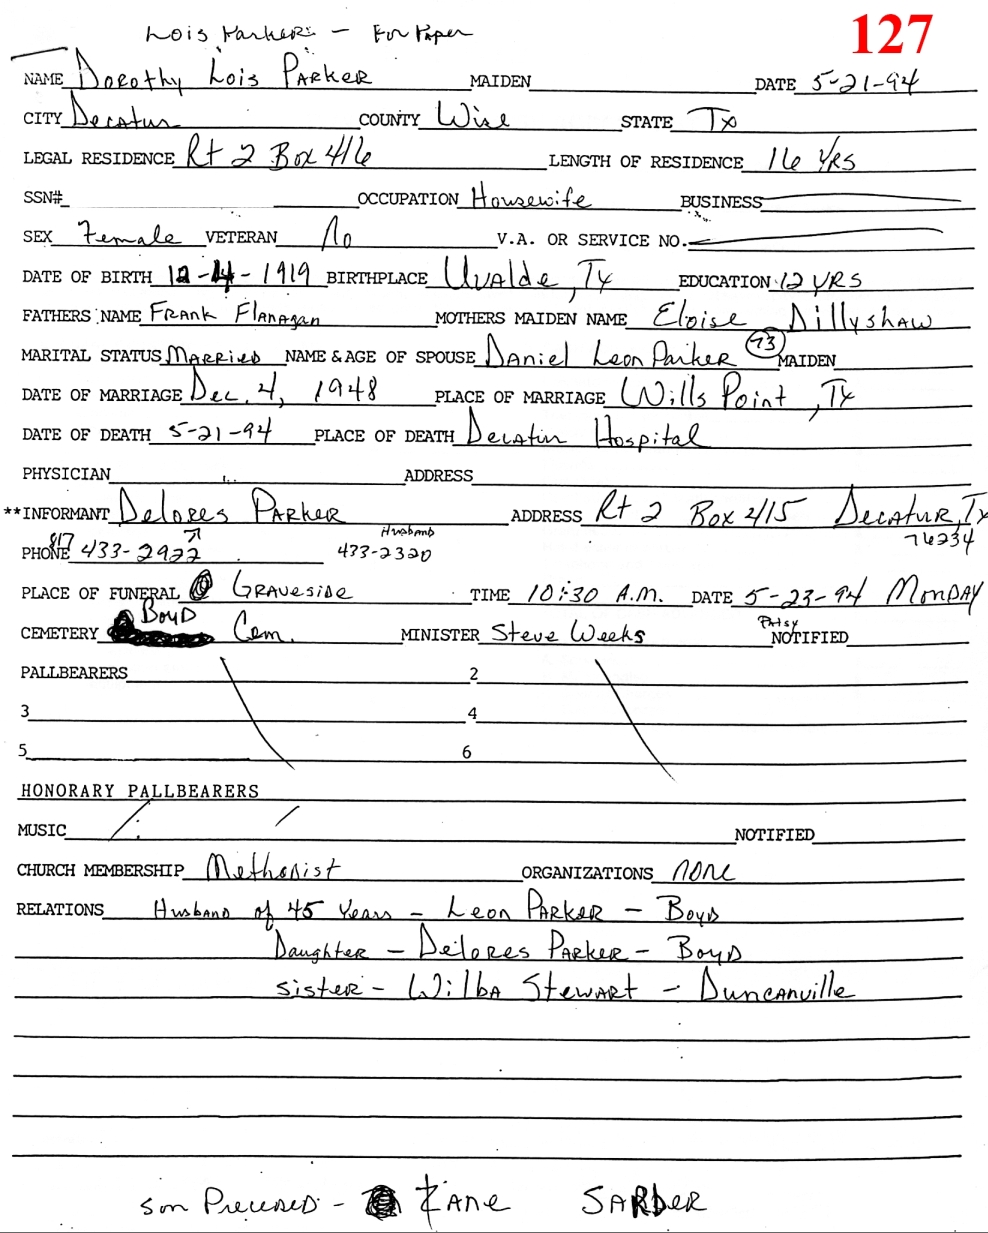 Lois Parker - For Paper
127
NAME Dorothy Lois Parker MAIDEN DATE 5-21-94
CITY Decatur COUNTY Wise STATE Tx
LEGAL RESIDENCE Rt 2 Box 416 LENGTH OF RESIDENCE 16 YRS
SSN# OCCUPATION Housewife BUSINESS
SEX Female VETERAN No V.A. OR SERVICE NO.
DATE OF BIRTH 12-14-1919 BIRTHPLACE Uvalde, Tx EDUCATION 12 YRS
FATHERS NAME Frank Flanagan MOTHERS MAIDEN NAME Eloise Dillyshaw
MARITAL STATUS Married NAME & AGE OF SPOUSE Daniel Leon Parker 73 MAIDEN
DATE OF MARRIAGE Dec. 4, 1948 PLACE OF MARRIAGE Wills Point, Tx
DATE OF DEATH 5-21-94 PLACE OF DEATH Decatur Hospital
PHYSICIAN ADDRESS
**INFORMANT Delores Parker ADDRESS Rt 2 Box 415 Decatur, Tx
Husband 76234
PHONE 817 433-2922 433-2320
PLACE OF FUNERAL Graveside TIME 10:30 A.M. DATE 5-23-94 Monday
CEMETERY Boyd Cem. MINISTER Steve Weeks Patsy NOTIFIED
PALLBEARERS 2
3 4
5 6
HONORARY PALLBEARERS
MUSIC NOTIFIED
CHURCH MEMBERSHIP Methodist ORGANIZATIONS none
RELATIONS Husband of 45 Years - Leon Parker - Boyd
Daughter - Delores Parker - Boyd
Sister - Wilba Stewart - Duncanville
son Preceded - Zane Sarber